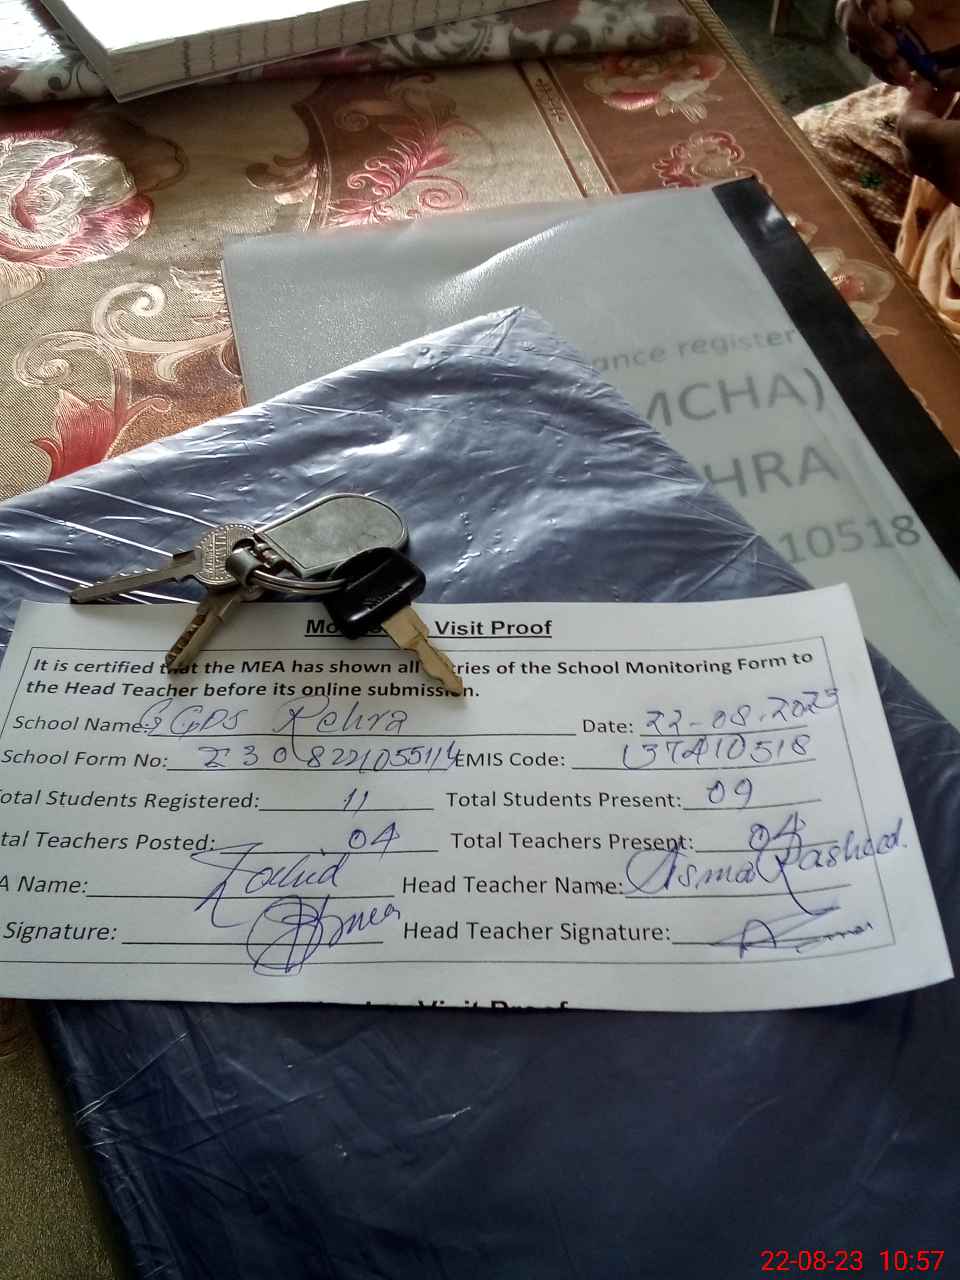 ance register
MCHA)
HRA
10518
Visit Proof
It is certified that the MEA has shown all entries of the School Monitoring Form to
the Head Teacher before its online submission.
School Name: GGPS Rehra Date: 22-08-2023
School Form No: EMIS Code: 37410518
otal Students Registered: 11 Total Students Present: 09
tal Teachers Posted: 04 Total Teachers Present: 04
A Name: Zahid Head Teacher Name: Asma Rasheed.
Signature: Head Teacher Signature: Asma
Visit Proof
22-08-23 10:57